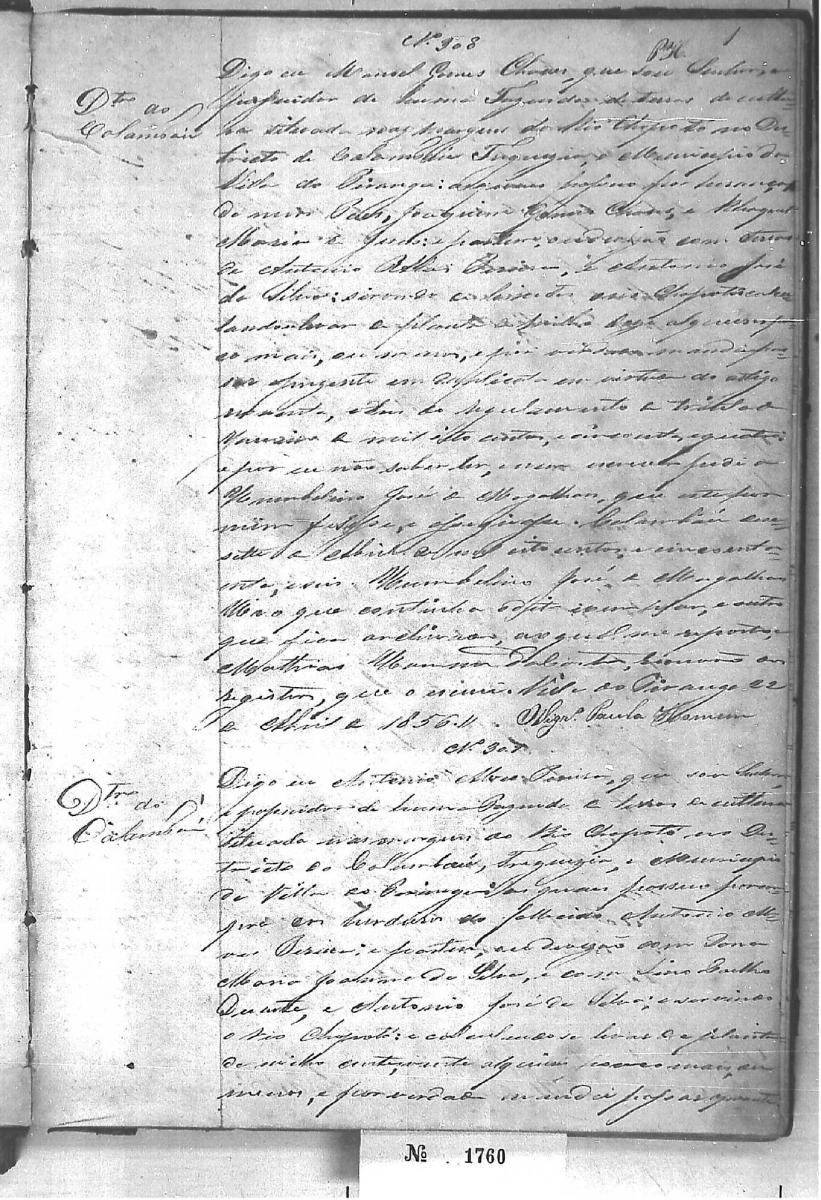 Nº 308
1
Dtro do
Calambáu
Digo eu Manoel Gomes Chaves, que sou Senhor, e
possuidor de huma Fazenda de terras de cultu-
ra situada nas margens do Rio Chopotó no Dis-
tricto de Calambáu Freguezia, e Municipio da
Villa do Piranga: as quaes possuo por herança
de meus Pais, Joaquim Gomes Chaves, e
Maria de Jesus: e partem, e dividem com terras
de Antonio Alves Pereira, e Antonio José
da Silva: servindo de limites o rio Chopotó: e
levar de planta de milho alqueires
co mais, ou menos, e por verdade mandei pas-
sar o presente em duplicata em virtude do artigo
noventa, e tres do regulamento de trinta de
Janeiro de mil oito centos, e cincoenta, e quatro:
e por eu não saber ler, e nem escrever pedi a
Humbelino José de Magalhães, que este por
mim fizesse, e assignasse. Calambáu
sette de Abril de mil oito centos, e cincoenta
e seis. Humbelino José de Magalhães
que continha e outro
que fica archivado, ao qual me reporto, e
Mathias escrivão dos
registros, que o escrevi. Villa do Piranga 22
de Abril de 1856. Vigrº Paula Homem
Nº 309
Dtro do
Calambáu
Digo eu Antonio Alves Pereira, que sou Senhor,
e possuidor de huma Fazenda de terras de cultura
situada nas margens do Rio Chopotó no Dis-
tricto do Calambáu, Freguezia, e Municipio
da Villa do Piranga: as quais possuo por
que eu herdeiro do fallecido Antonio Al-
ves Pereira: e partem, e dividem com Dona
Maria Joaquina da Silva, e com Lino Coelho
Duarte, e Antonio José da Silva; e servindo
o Rio Chopotó: e calculando-se levar de planta
de milho cento, e vinte alqueires pouco mais, ou
menos, e por verdade mandei passar o presente
Nº 1760